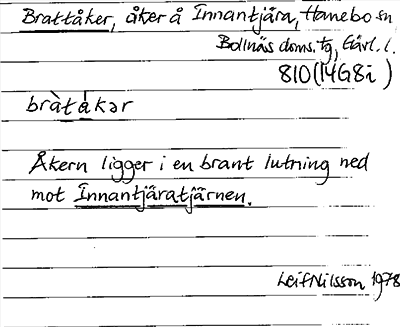 Brattåker, åker å Innantjära, Hanebo sn
Bollnäs doms. tg, Gävl. l.
810 (14G8i)
bràtåkər
Åkern ligger i en brant lutning ned
mot Innantjäratjärnen.
Leif Nilsson 1978